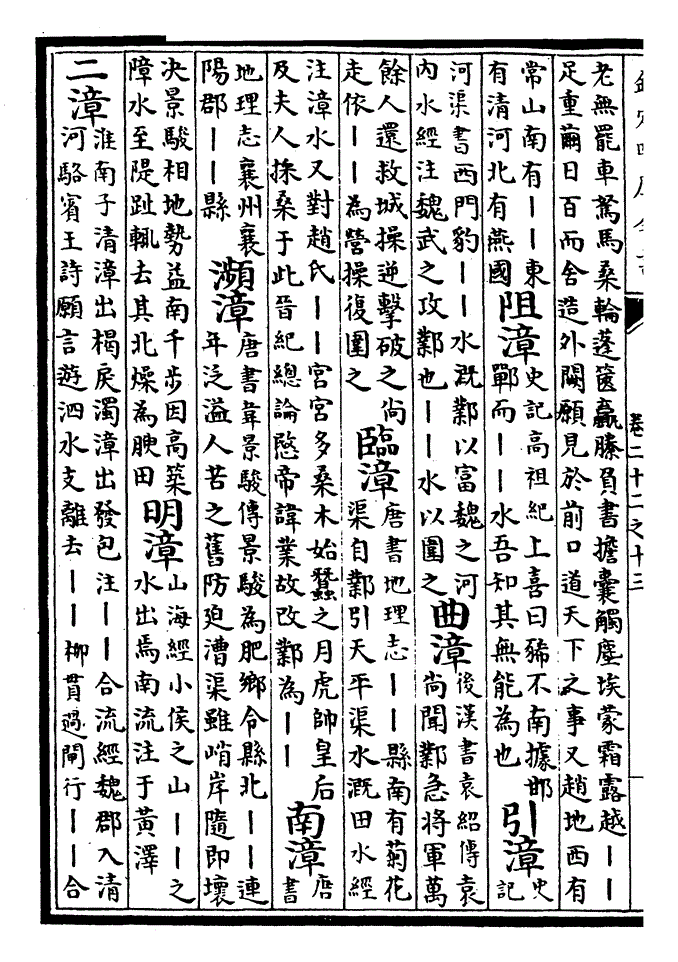 卷二十二之十三
老無罷車駑馬桑輪蓬篋羸縢負書擔囊觸塵埃蒙霜露越丨丨
足重繭日百而舍造外闕願見於前口道天下之事又趙地西有
常山南有丨丨東
有清河北有燕國
阻漳
史記高祖紀上喜曰豨不南據邯
鄲而丨丨水吾知其無能為也
引漳
史
記
河渠書西門豹丨丨水溉鄴以富魏之河
内水經注魏武之攻鄴也丨丨水以圍之
曲漳
後漢書袁紹傳袁
尚聞鄴急將軍萬
餘人還救城操逆擊破之尚
走依丨丨為營操復圍之
臨漳
唐書地理志丨丨縣南有菊花
渠自鄴引天平渠水溉田水經
注漳水又對趙氏丨丨宮宮多桑木始蠶之月虎帥皇后
及夫人採桑于此晉紀總論愍帝諱業故改鄴為丨丨
南漳
唐
書
地理志襄州襄
陽郡丨丨縣
瀕漳
唐書韋景駿傳景駿為肥鄉令縣北丨丨連
年泛溢人苦之舊防迫漕渠雖峭岸隨即壞
决景駿相地勢益南千步因高築
障水至隄趾輒去其北燥為腴田
明漳
山海經小侯之山丨丨之
水出焉南流注于黃澤
二漳
淮南子清漳出楬戾濁漳出發包注丨丨合流經魏郡入清
河駱賓王詩願言遊泗水支離去丨丨柳貫過閘行丨丨合